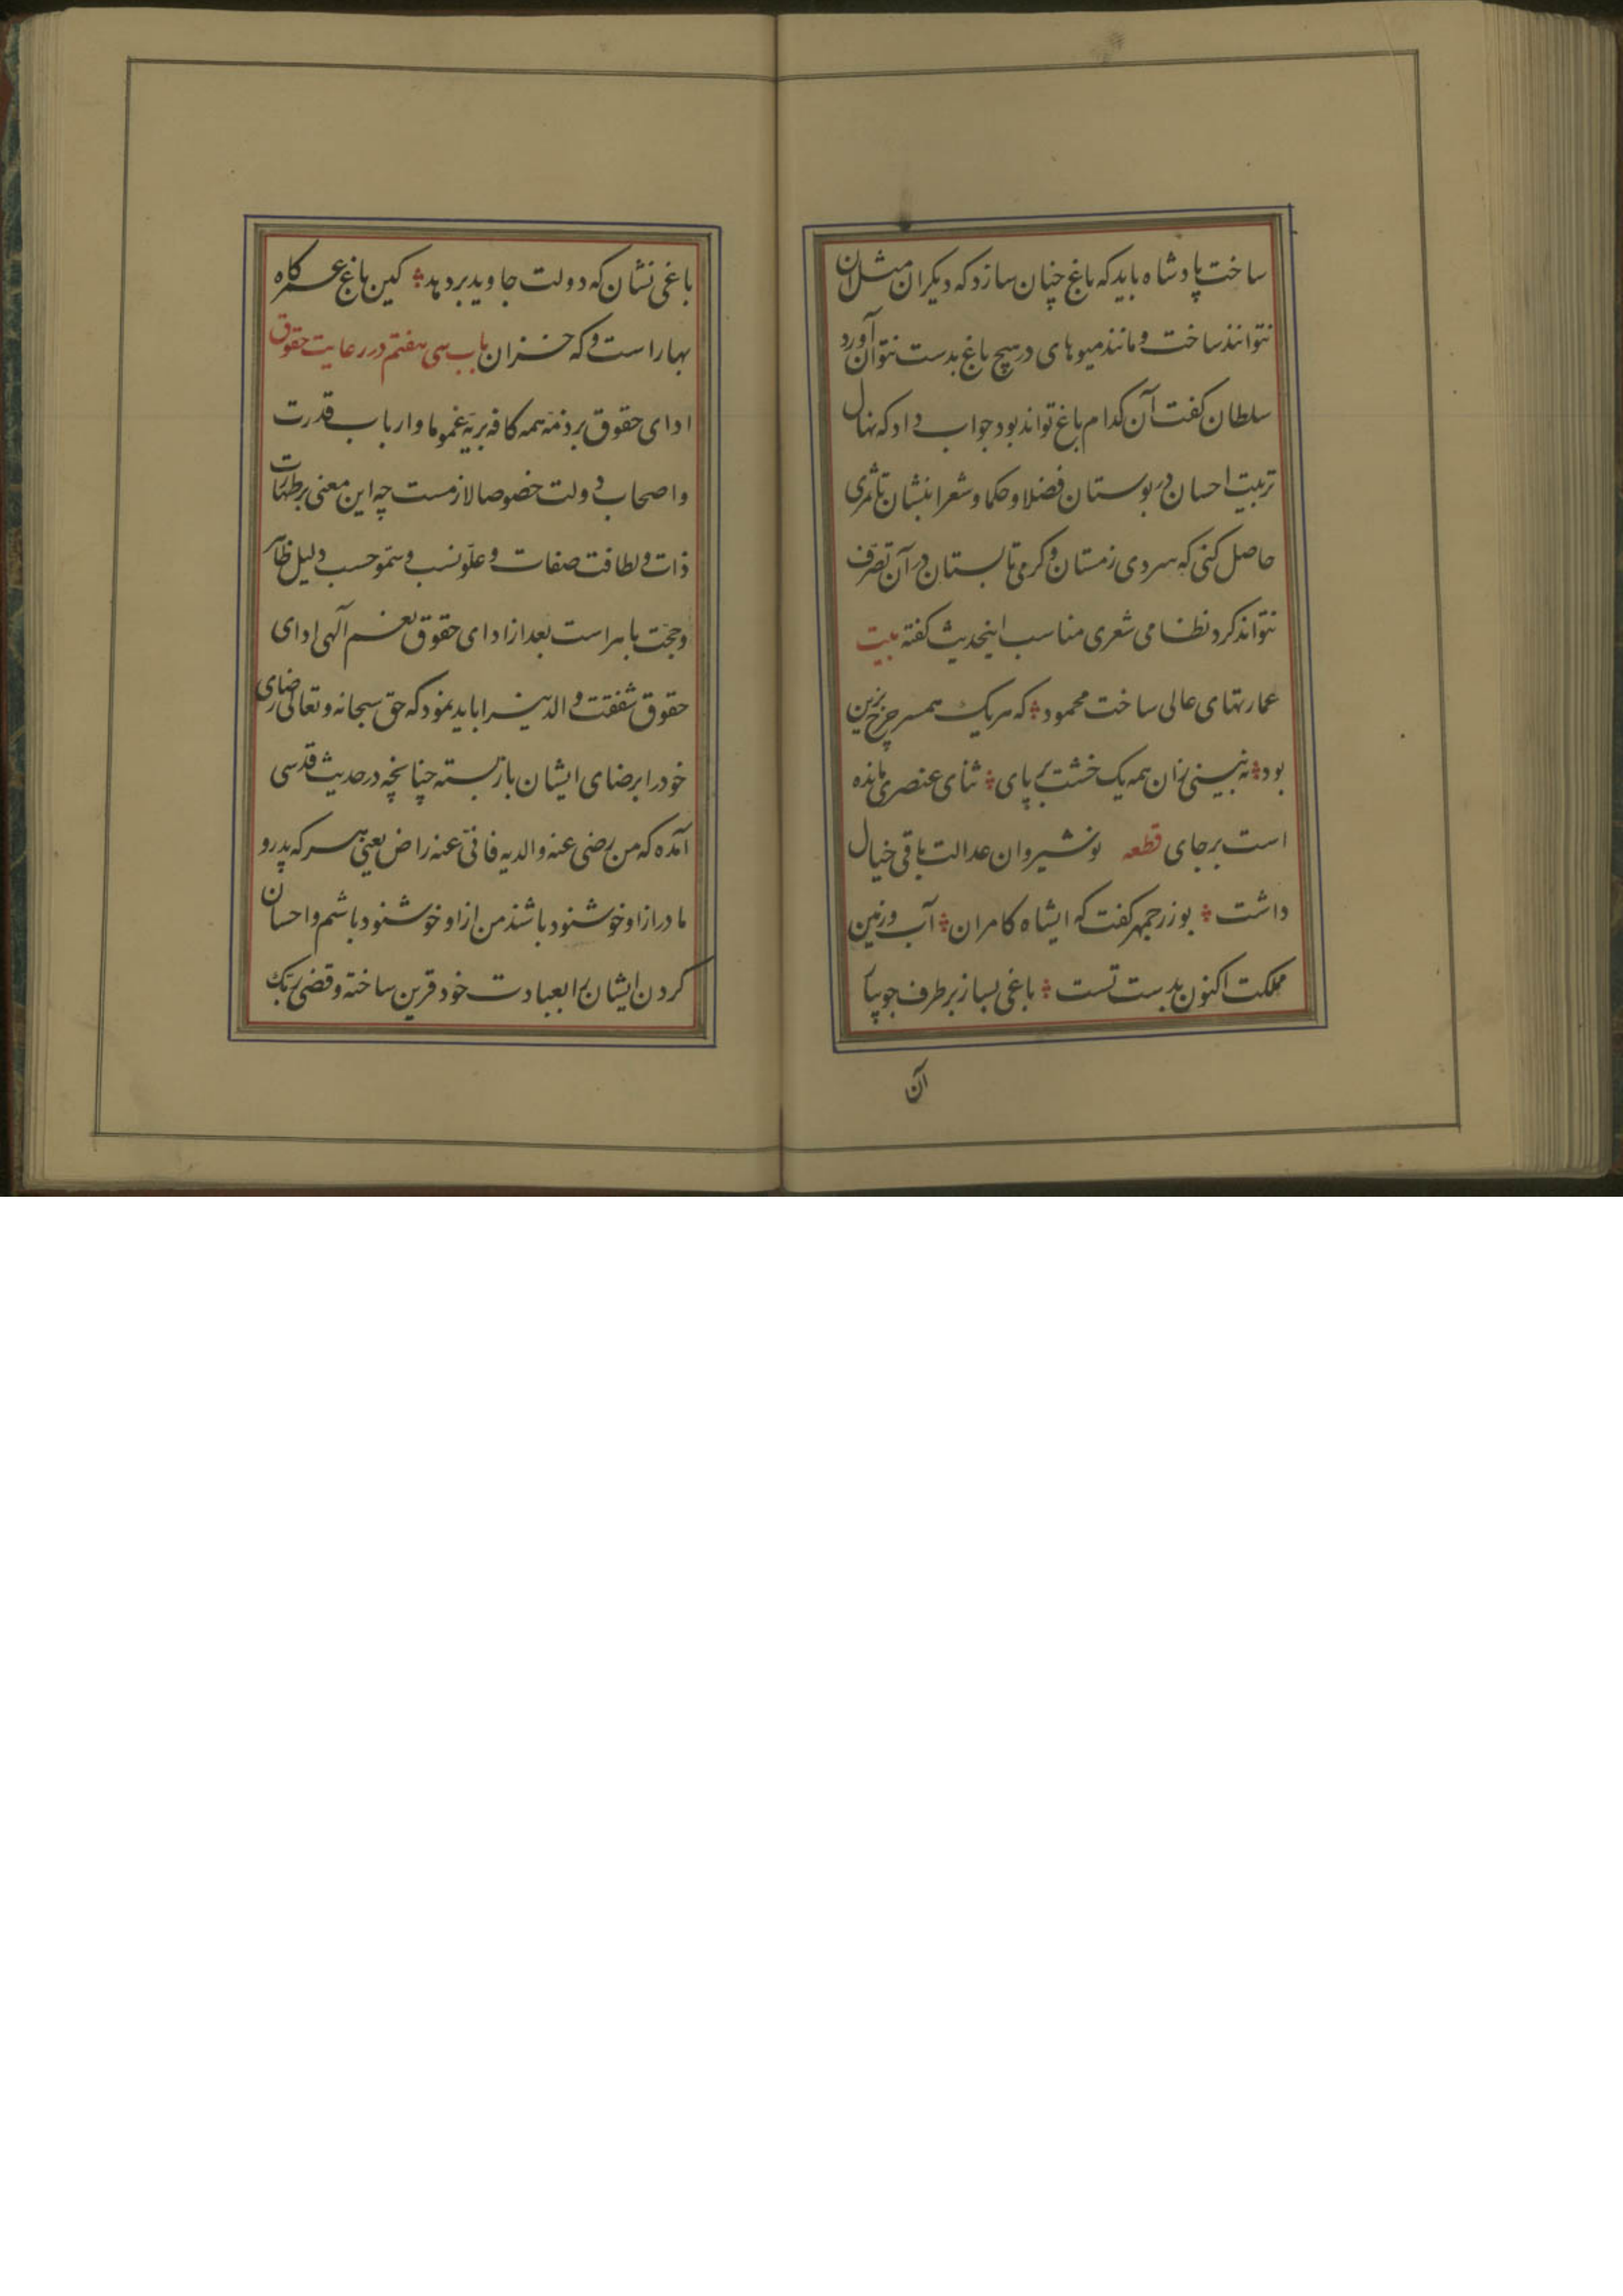 ساخت پادشاه باید که باغ چنان سازد که دیکران مثل آن
نتوانند ساخت و مانند میوهای در هیچ باغ بدست نتوان آورد
سلطان کفت آن کدام باغ تواند بود جواب داد که نهال
تربیت احسان در بوستان فضلا و حکما و شعرا بنشان تا ثمری
حاصل کنی که سردی زمستان و کرمی تابستان در آن تصرّف
نتواند کرد نظامی شعری مناسب اینحدیث کفته بیت
عمارتهای عالی ساخت محمود که هر یک همسر چرخ برین
بود نه بینی زان همه یک خشت بر پای ثنای عنصری مانده
است بر جای قطعه نوشیروان عدالت باقی خیال
داشت بوزرجمهر کفت که ایشاه کامران آب و زمین
مملکت اکنون بدست تست باغی بساز بر طرف جویبار
آن
باغی نشان که دولت جاوید بر دهد کین باغ عمر کاه
بهار است و که خزان باب سی هفتم در رعایت حقوق
ادای حقوق بر ذمّه همه کافه بریّه عموما و ارباب قدرت
و اصحاب دولت خصوصا لازمست چه این معنی بر طهارت
ذات و لطافت صفات و علّو نسب و سمّو حسب دلیل ظاهر
و حجّت باهر است بعد از ادای حقوق نعم آلهی ادای
حقوق شفقت والدینرا باید نمود که حق سبحانه و تعالی رضای
خود را برضای ایشان باز بسته چنانچه در حدیث قدسی
آمده که من رضی عنه والدیه فانّی عنه راض یعنی هر که پدر و
مادر از او خوشنود باشند من از او خوشنود باشم و احسان
کردن ایشانرا بعبادت خود قرین ساخته و قضی ربّک